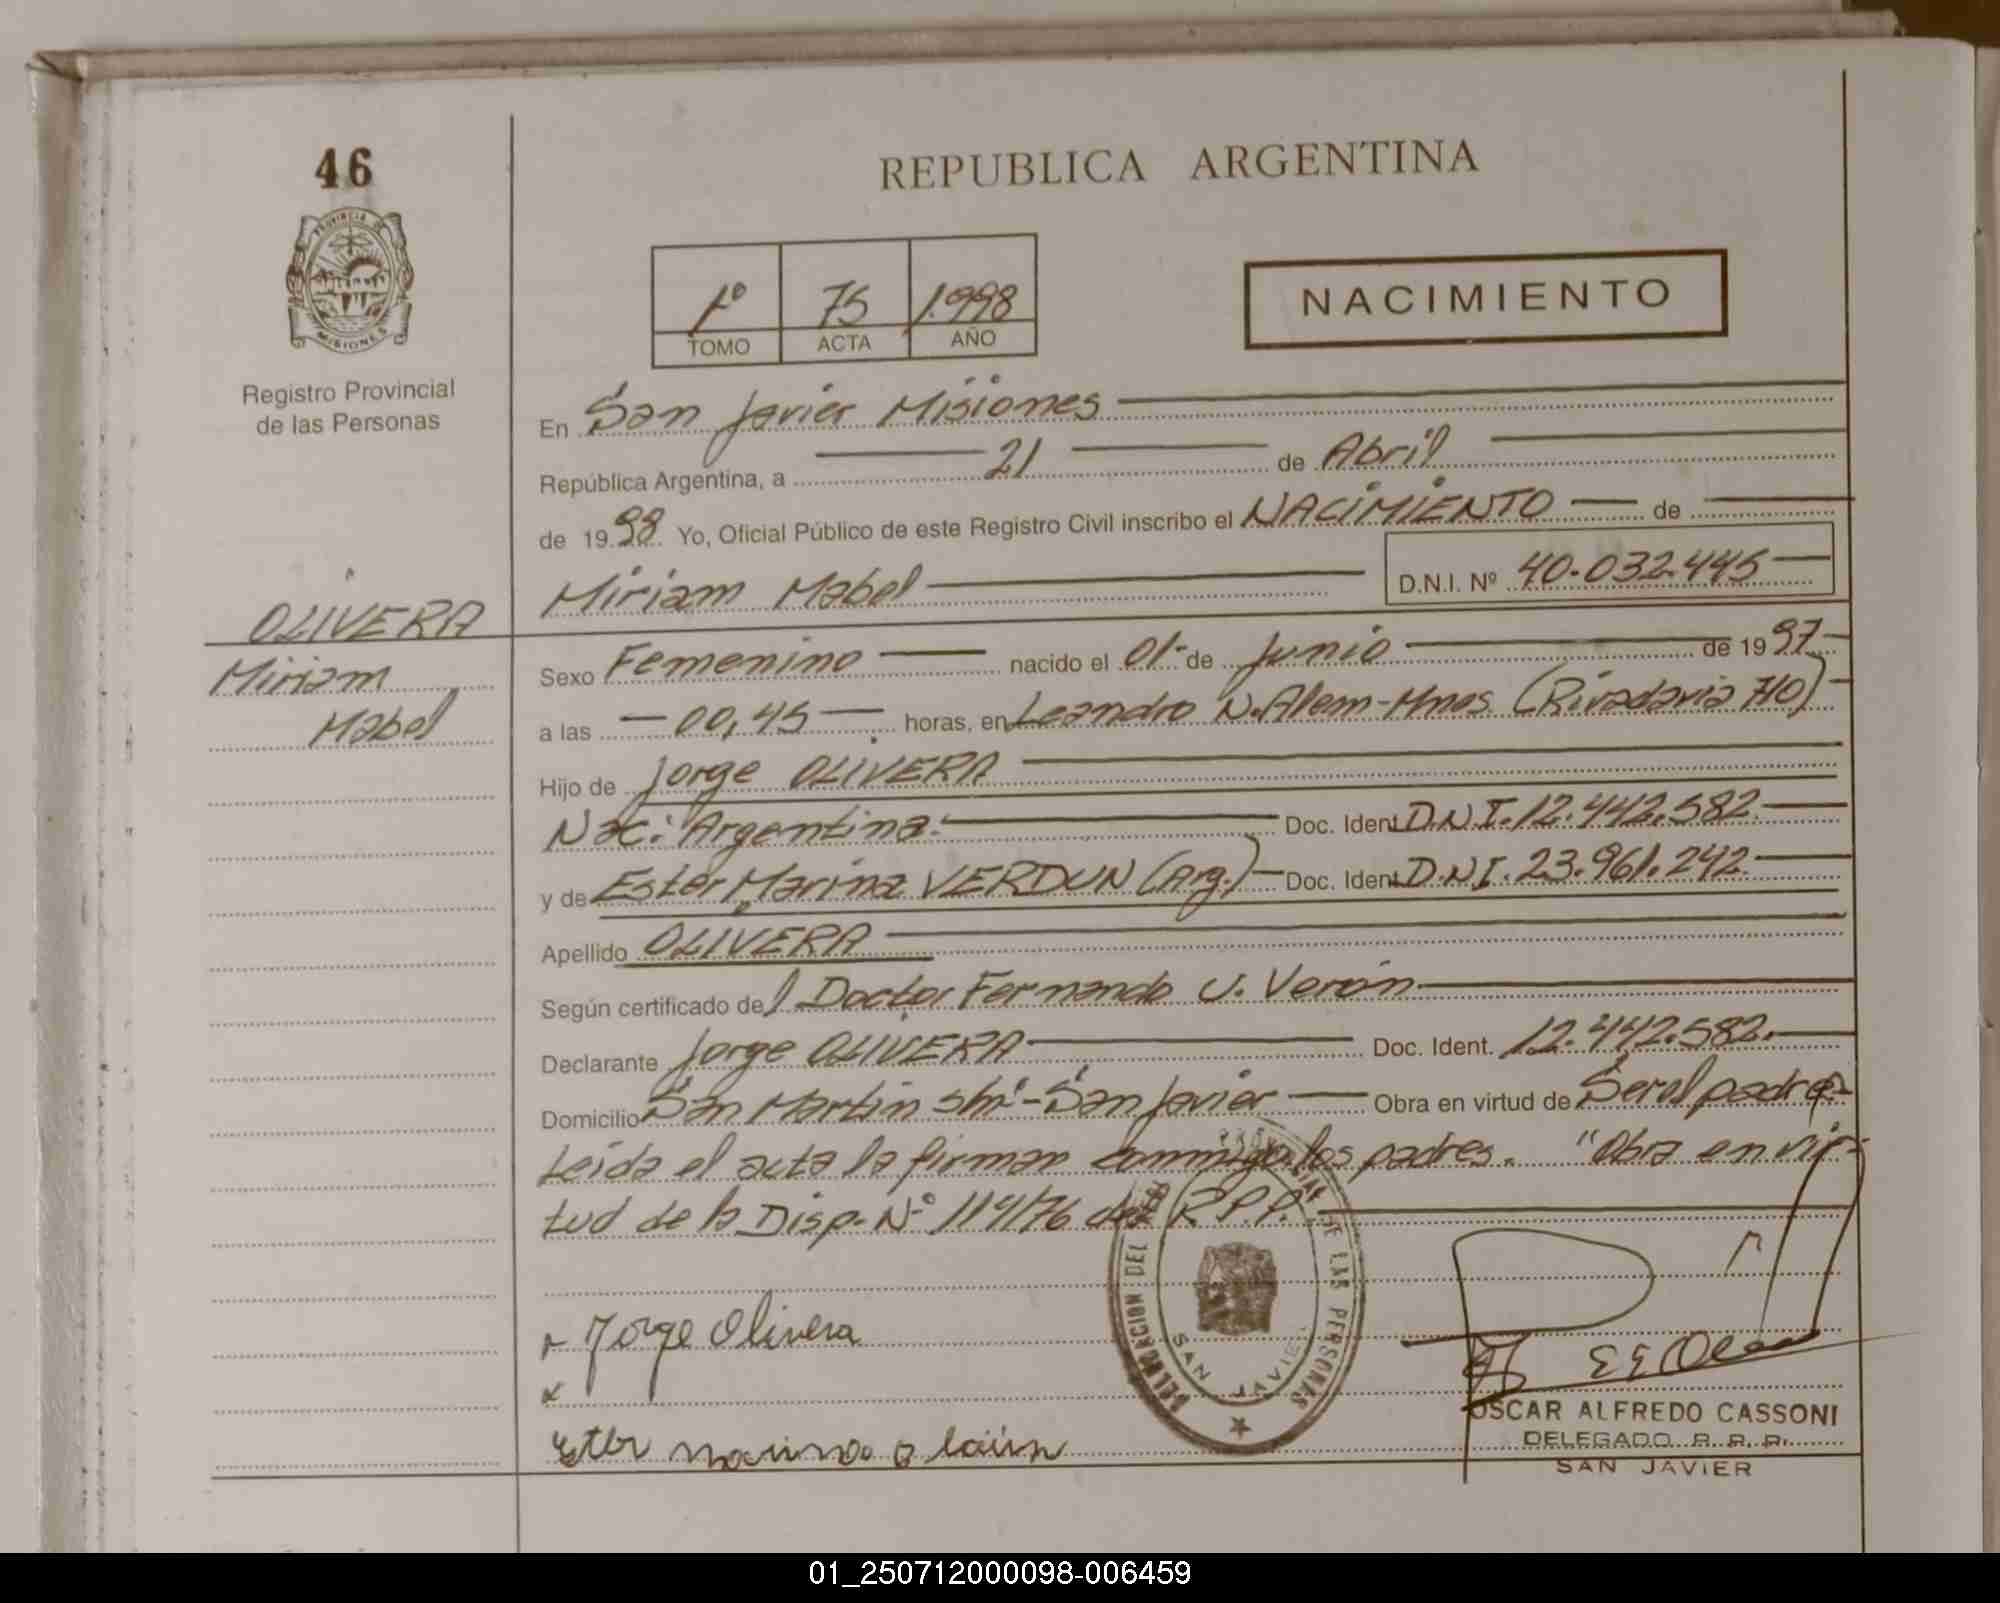 46
REPUBLICA ARGENTINA
PROVINCIA DE MISIONES
1º 75 1.998
TOMO ACTA AÑO
NACIMIENTO
Registro Provincial
de las Personas
En San Javier Misiones
República Argentina, a 21 de Abril
de 1998 Yo, Oficial Público de este Registro Civil inscribo el NACIMIENTO de
Miriam Mabel D.N.I. Nº 40.032.445
OLIVERA
Miriam
Mabel
Sexo Femenino nacido el 01 de Junio de 1997
a las 00,45 horas, en Leandro N. Alem-Mnes (Rivadavia 710)
Hijo de Jorge OLIVERA
Nac: Argentina. Doc. Ident D.N.I. 12.442.582
y de Ester Marina VERDUN (Arg.) Doc. Ident D.N.I. 23.961.242
Apellido OLIVERA
Según certificado del Doctor Fernando J. Verón
Declarante Jorge OLIVERA Doc. Ident. 12.442.582.
Domicilio San Martin s/nº - San Javier Obra en virtud de Ser el padre
Leida el acta la firman conmigo los padres. "Obra en vir-
tud de la Disp. Nº 114/76 del R.P.P."
DELEGACION DEL DE LAS PERSONAS
SAN JAVIER
Jorge Olivera
x
OSCAR ALFREDO CASSONI
DELEGADO R. P. P.
SAN JAVIER
01_250712000098-006459